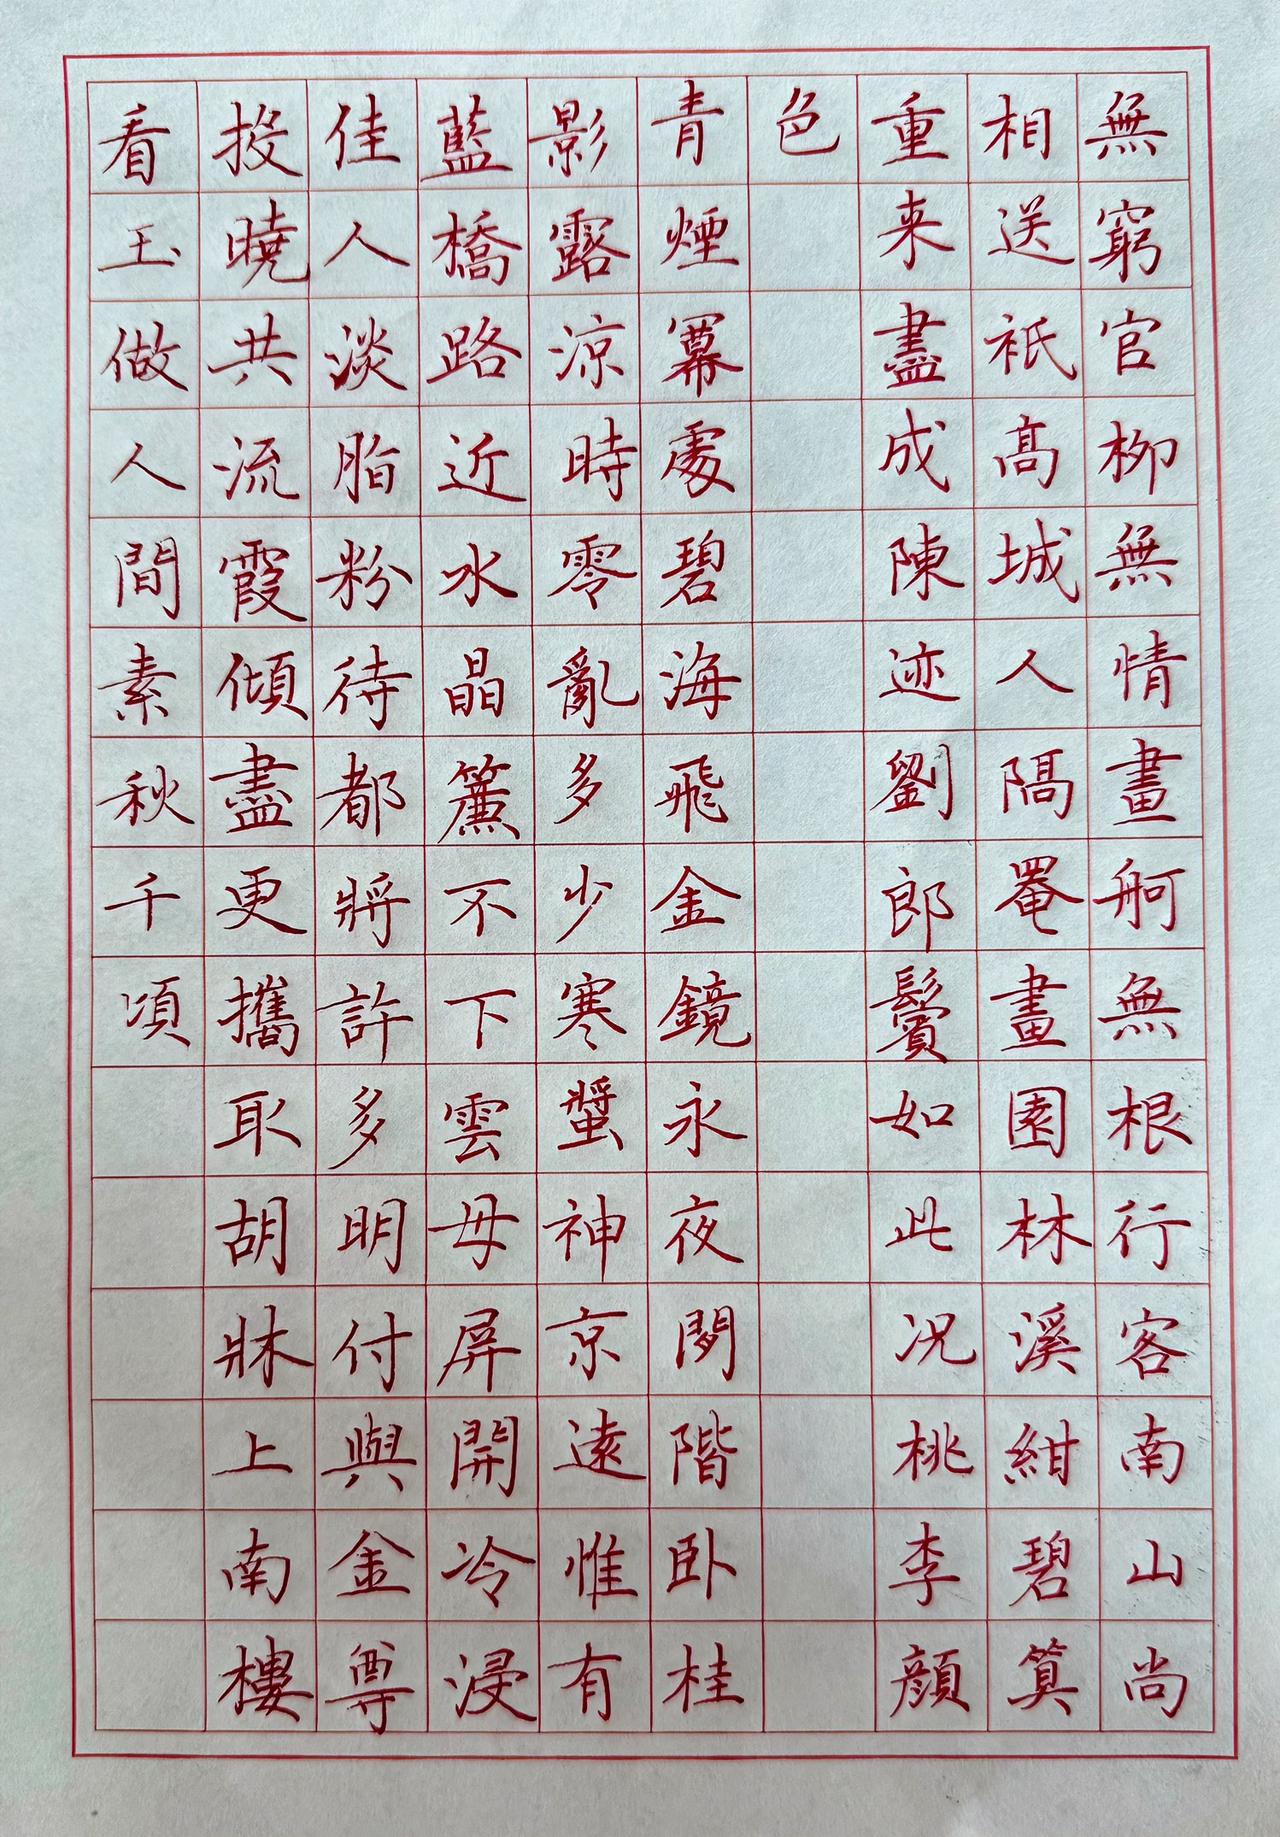 無窮官柳無情畫舸無根行客南山尚
相送袛高城人隔罨畫園林溪紺碧算
重来盡成陳迹劉郎鬢如此况桃李顔
色
青煙冪處碧海飛金鏡永夜閒階卧桂
影露涼時零亂多少寒螿神京遠惟有
藍橋路近水晶簾不下雲母屏開冷浸
佳人淡脂粉待都將許多明付與金尊
投曉共流霞傾盡更攜取胡牀上南樓
看玉做人間素秋千頃